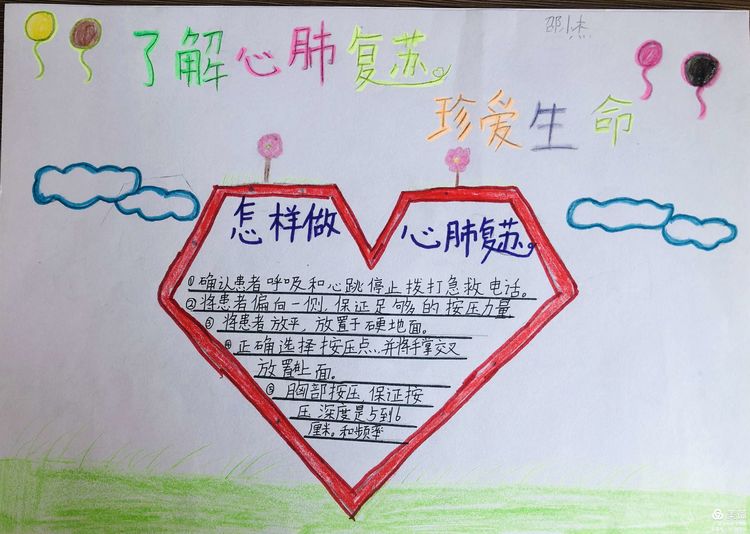 了解心肺复苏。
邵小杰
珍爱生命
怎样做 心肺复苏。
①确认患者呼吸和心跳停止拨打急救电话。
②将患者偏向一侧,保证足够的按压力量
③将患者放平,放置于硬地面。
④正确选择按压点,并将手掌交叉
放置上面。
⑤胸部按压,保证按
压深度是5到6
厘米。和频率